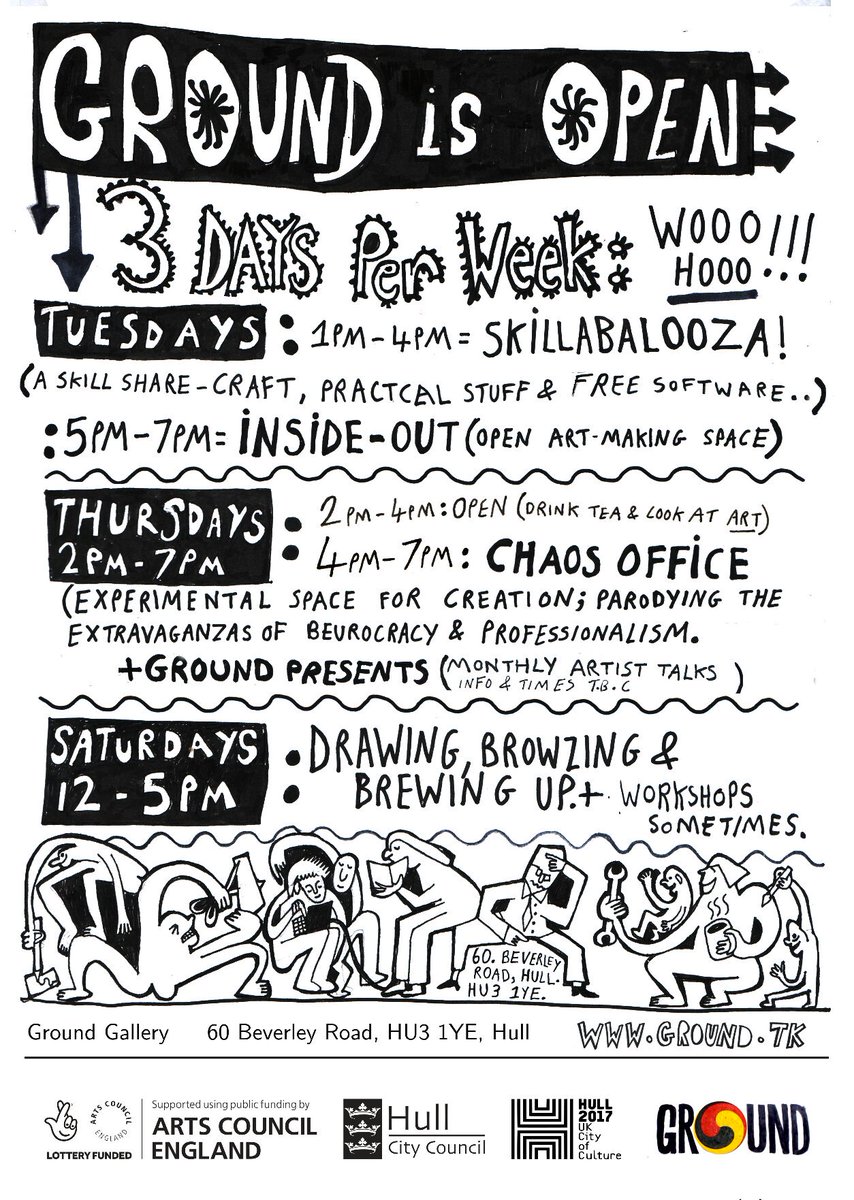 GROUND iS OPEN
3 DAYS Per Week: WOOO HOOO...!!!
TUESDAYS : 1PM-4PM= SKiLLABALOOZA!
(A SKILL SHARE-CRAFT, PRACTCAL STUFF & FREE SOFTWARE..)
:5PM-7PM= iNSiDE-OUT (OPEN ART-MAKING SPACE)
THURSDAYS 2PM-7PM
: 2PM-4PM: OPEN (DRINK TEA & LOOK AT ART)
4PM-7PM: CHAOS OFFiCE
(EXPERIMENTAL SPACE FOR CREATION; PARODYING THE
EXTRAVAGANZAS OF BEUROCRACY & PROFESSIONALISM.
+GROUND PRESENTS (MONTHLY ARTIST TALKS
INFO & TIMES T.B.C )
SATURDAYS
12 - 5PM
: DRAWING, BROWZING &
BREWING UP.+ WORKSHOPS
SOMETIMES.
60. BEVERLEY
ROAD, HULL.
HU3 1YE.
Ground Gallery 60 Beverley Road, HU3 1YE, Hull WWW.GROUND.TK
LOTTERY FUNDED
ARTS COUNCIL ENGLAND
Supported using public funding by
ARTS COUNCIL
ENGLAND
Hull
City Council
HULL
2017
UK
City
of
Culture
GROUND